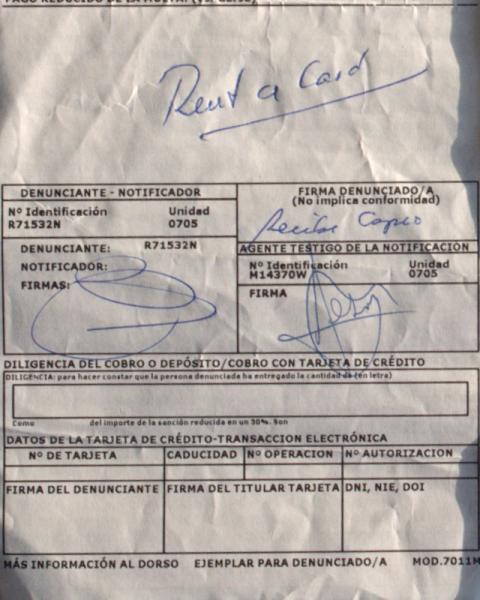 Rent a Card
DENUNCIANTE - NOTIFICADOR
Nº Identificación Unidad
R71532N 0705
DENUNCIANTE: R71532N
NOTIFICADOR:
FIRMAS:
FIRMA DENUNCIADO/A
(No implica conformidad)
Recibe Copia
AGENTE TESTIGO DE LA NOTIFICACIÓN
Nº Identificación Unidad
M14370W 0705
FIRMA
DILIGENCIA DEL COBRO O DEPÓSITO/COBRO CON TARJETA DE CRÉDITO
DILIGENCIA: para hacer constar que la persona denunciada ha entregado la cantidad de (en letra)
Como del importe de la sanción reducida en un 30%. Son
DATOS DE LA TARJETA DE CRÉDITO-TRANSACCION ELECTRÓNICA
Nº DE TARJETA CADUCIDAD Nº OPERACION Nº AUTORIZACION
FIRMA DEL DENUNCIANTE FIRMA DEL TITULAR TARJETA DNI, NIE, DOI
MÁS INFORMACIÓN AL DORSO EJEMPLAR PARA DENUNCIADO/A MOD.7011M